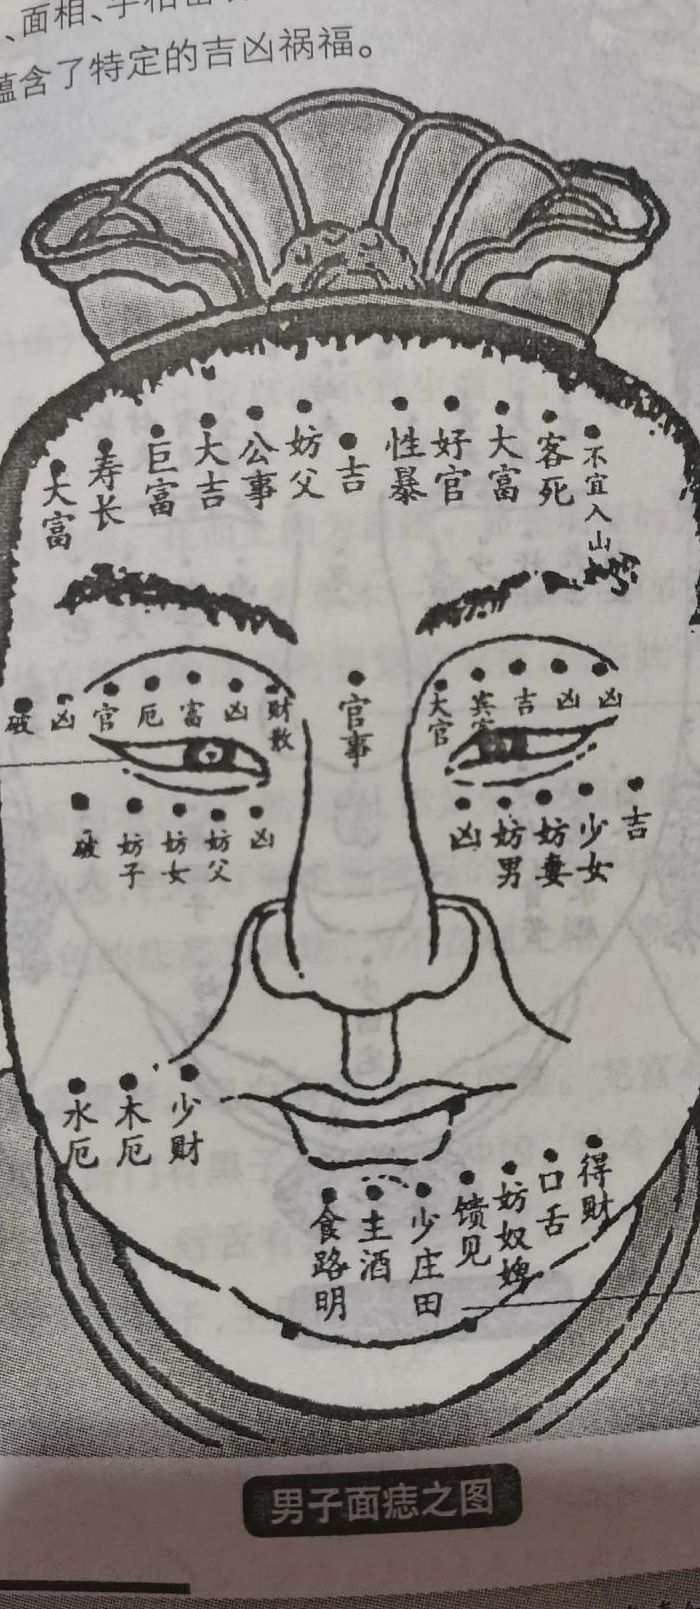 、面相、手和
蕴含了特定的吉凶祸福。
大富
寿长
巨富
大吉
公事
妨父
吉
性暴
好官
大富
客死
不宜入山
破
凶
官
厄
富
凶
财散
官事
大官
吉
凶
凶
破
妨子
妨女
妨父
凶
凶
妨男
妨妻
少女
吉
水厄
木厄
少财
食路明
主酒
少庄田
馈见
妨奴婢
口舌
得财
男子面痣之图